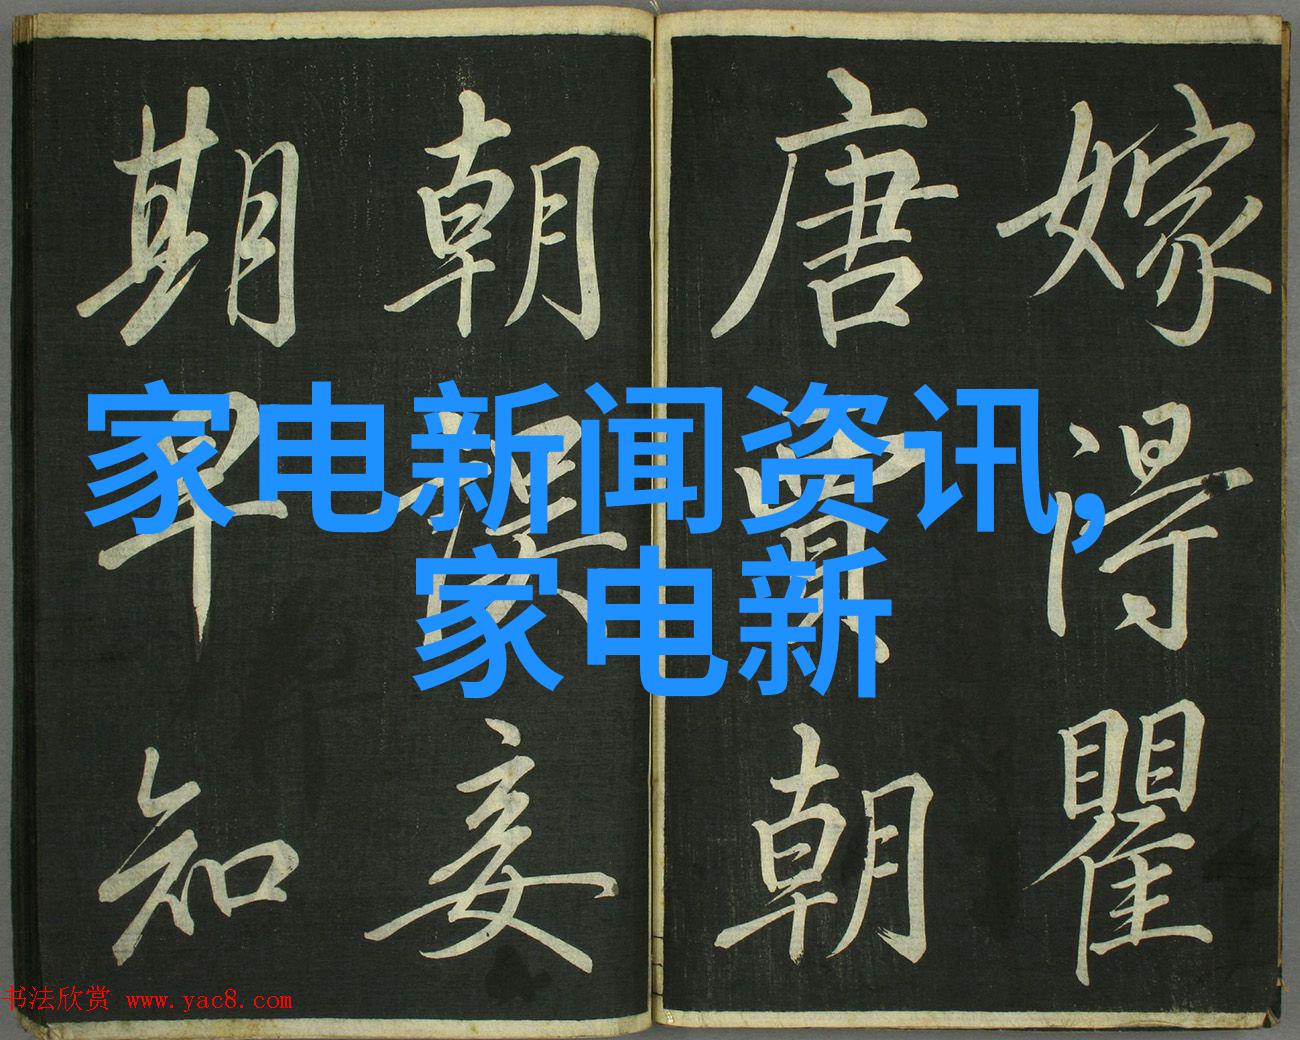 嫁得瞿
唐賈朝
朝誤妾
期早知
家电新闻资讯,
家电新
书法欣赏 www.yac8.com